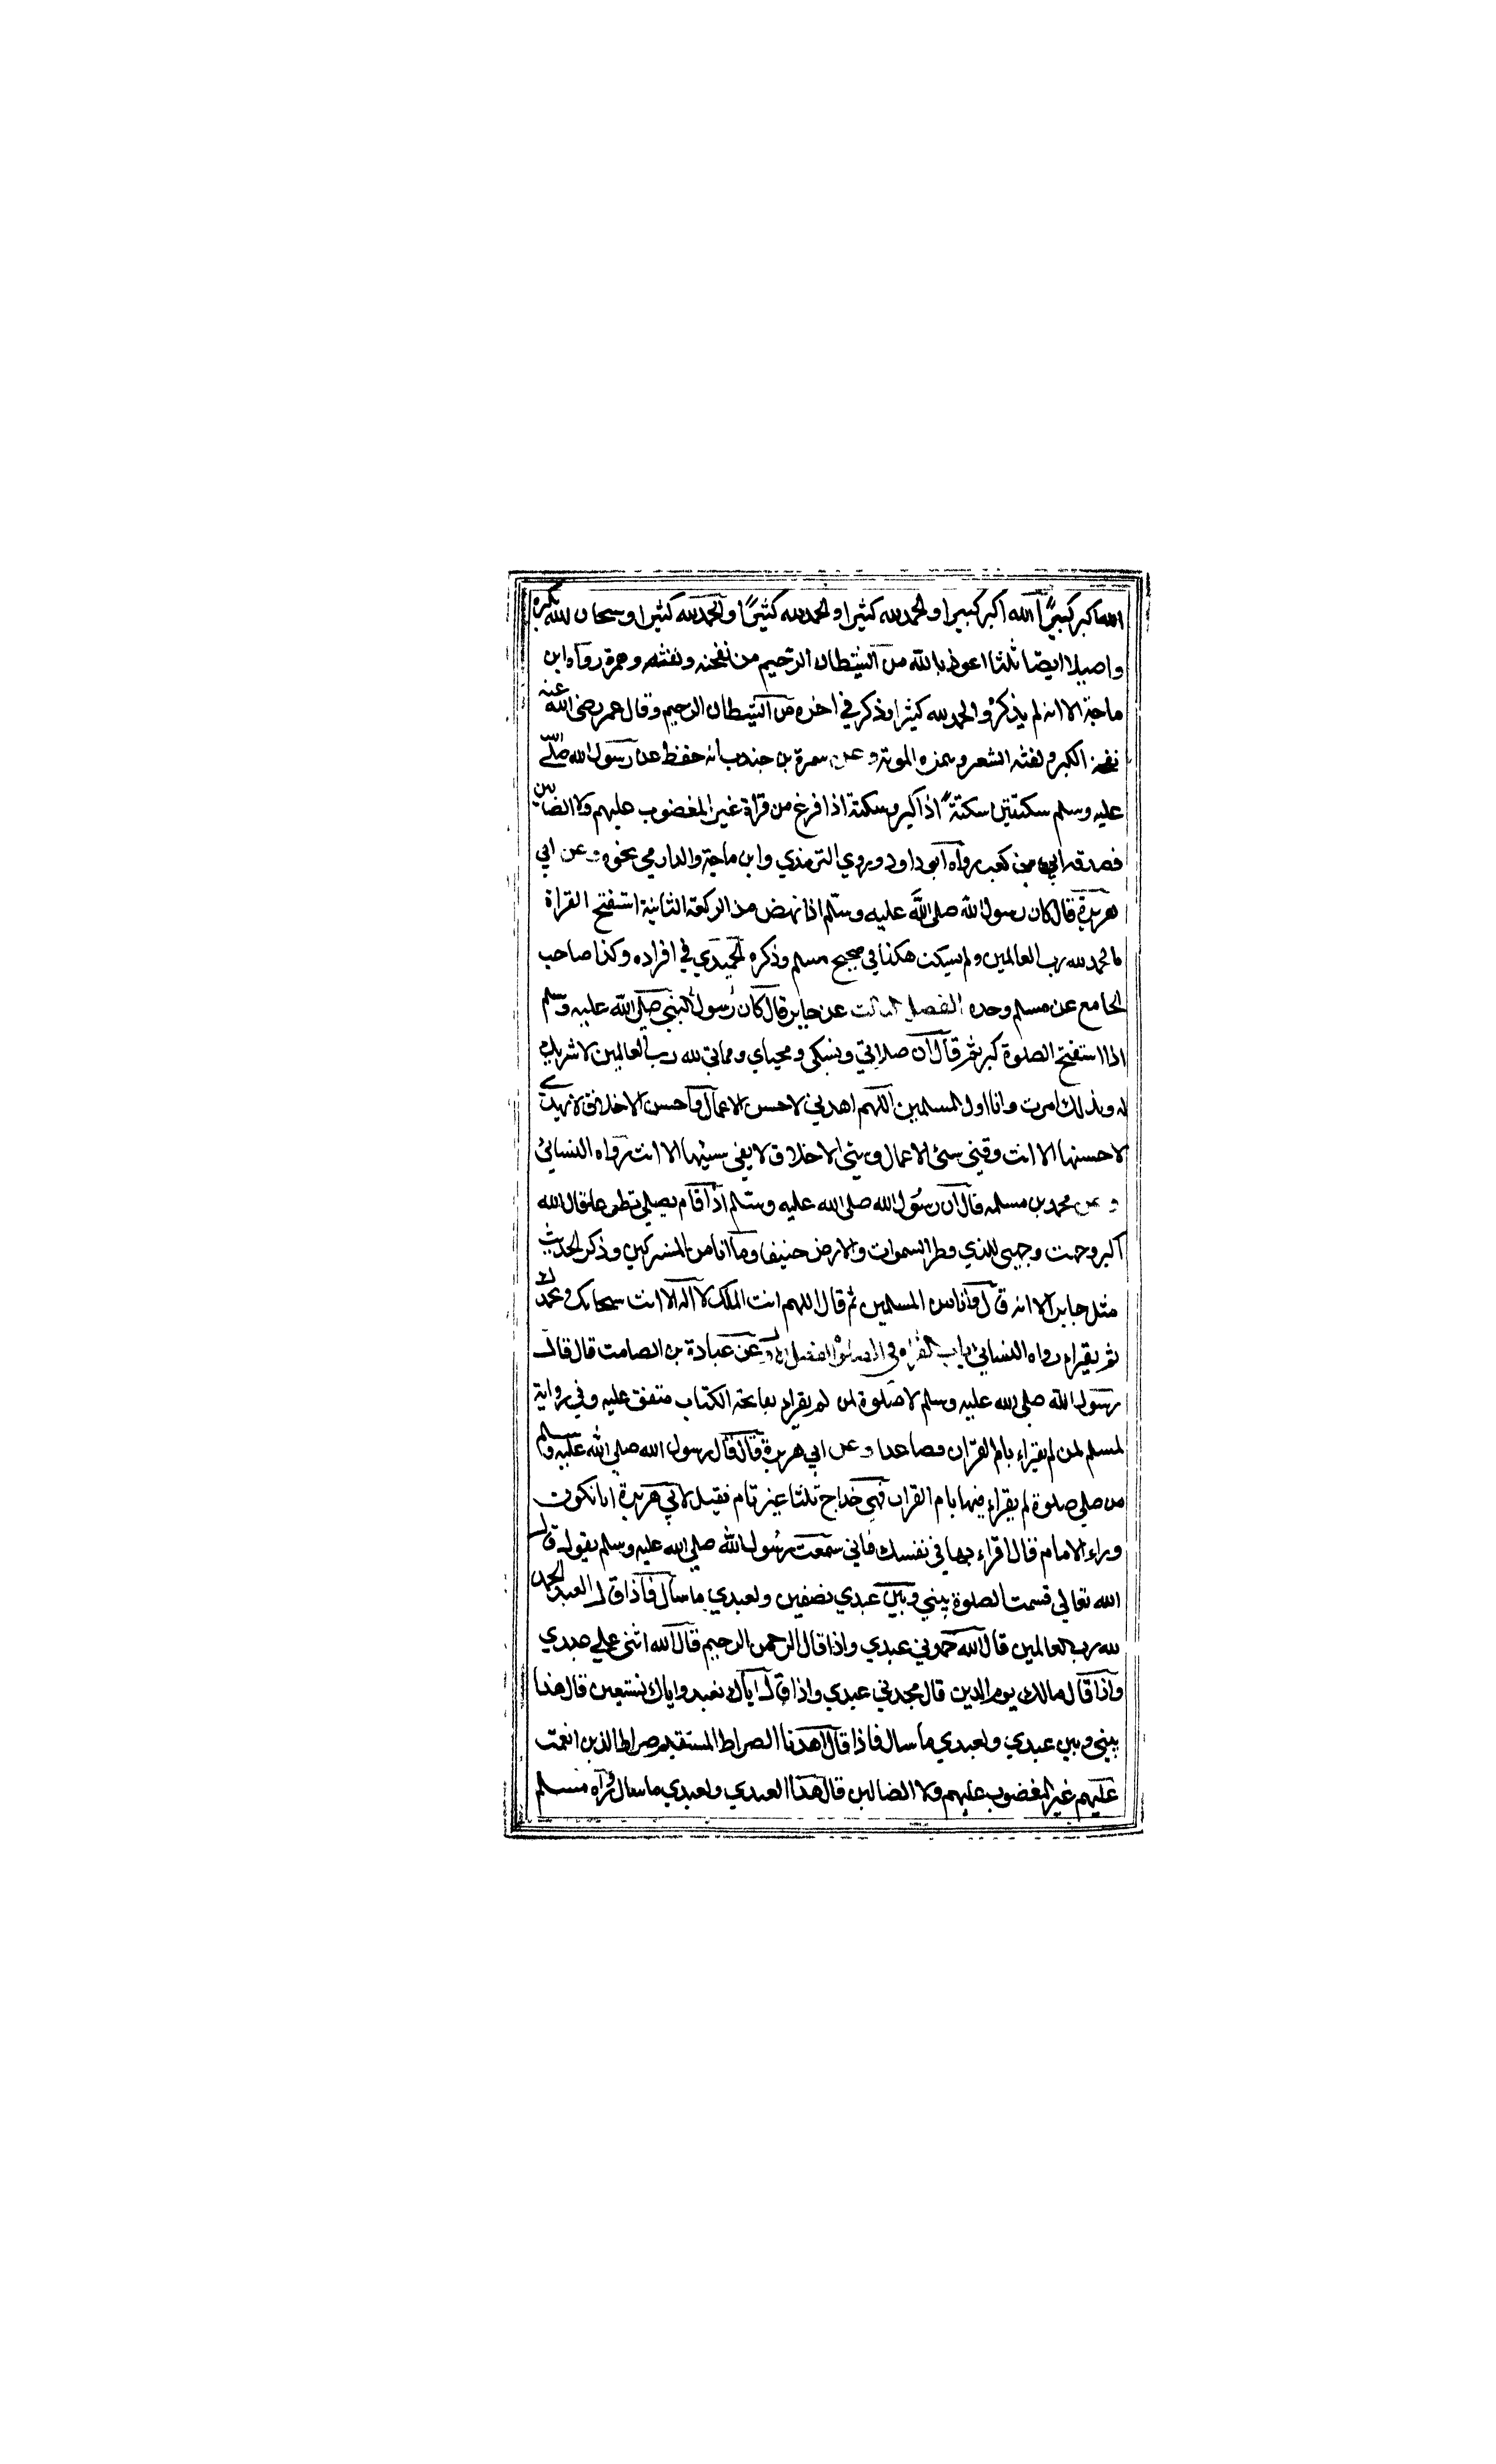 الله اكبر كبيرًا الله اكبر كبيرا والحمد لله كثيرا والحمد لله كثيرًا والحمد لله كثيرا وسبحان لله بكرة
واصيلا ايضا ثلثا اعوذ بالله من الشيطان الرجيم من نفخه ونفثه وهمزه رواه ابن
ماجة الا انه لم يذكر والحمد لله كثيرا وذكر في اخره من الشيطان الرجيم وقال عمر رضى الله عنه
نفخه الكبر ونفثه الشعر وهمزه الموتة وعن سمرة بن جندب انه حفظ عن رسول الله صلى الله
عليه وسلم سكتتين سكتة اذا كبر وسكتة اذا فرغ من قراة غير المغضوب عليهم ولا الضالين
فصدقه ابي بن كعب رواه ابو داود وروي الترمذي وابن ماجة والدارمي نحوه وعن ابي
هريرة قال كان رسول الله صلى الله عليه وسلم اذا نهض من الركعة الثانية استفتح القراة
بالحمد لله رب العالمين ولم يسكت هكذا في صحيح مسلم وذكره الحميدي في افراده وكذا صاحب
الجامع عن مسلم وحده الفصل الثالث عن جابر قال كان رسول النبي صلى الله عليه وسلم
اذا استفتح الصلوة كبر ثم قال ان صلاتي ونسكي ومحياي ومماتي لله رب العالمين لا شريك
له وبذلك امرت وانا اول المسلمين اللهم اهدني لاحسن الاعمال واحسن الاخلاق لا يهدي
لاحسنها الا انت وقني سئ الاعمال وسئ الاخلاق لا يقي سيئها الا انت رواه النسائي
وعن محمد بن مسلمه قال ان رسول الله صلى الله عليه وسلم اذا قام يصلي تطوعا قال الله
اكبر وجهت وجهي للذي فطر السموات والارض حنيفا وما انا من المشركين وذكر الحديث
مثل جابر الا انه قال وانا من المسلمين ثم قال اللهم انت الملك لا اله الا انت سبحانك وبحمدك
ثم يقراء رواه النسائي باب القراة في الصلوة الفصل الاول عن عبادة بن الصامت قال قال
رسول الله صلى الله عليه وسلم لا صلوة لمن لم يقراء بفاتحة الكتاب متفق عليه وفي رواية
لمسلم لمن لم يقراء بام القران فصاعدا وعن ابي هريرة قال قال رسول الله صلى الله عليه وسلم
من صلى صلوة لم يقراء فيها بام القران فهي خداج ثلثا غير تام فقيل لابي هريرة انا نكون
وراء الامام فقال اقراء بها في نفسك فاني سمعت رسول الله صلى الله عليه وسلم يقول قال
الله تعالى قسمت الصلوة بيني وبين عبدي نصفين ولعبدي ما سال فاذا قال العبد الحمد
لله رب العالمين قال الله حمدني عبدي واذا قال الرحمن الرحيم قال الله اثنى علي عبدي
واذا قال مالك يوم الدين قال مجدني عبدي واذا قال اياك نعبد واياك نستعين قال هذا
بيني وبين عبدي ولعبدي ما سال فاذا قال اهدنا الصراط المستقيم صراط الذين انعمت
عليهم غير المغضوب عليهم ولا الضالين قال هذا العبدي ولعبدي ما سال رواه مسلم